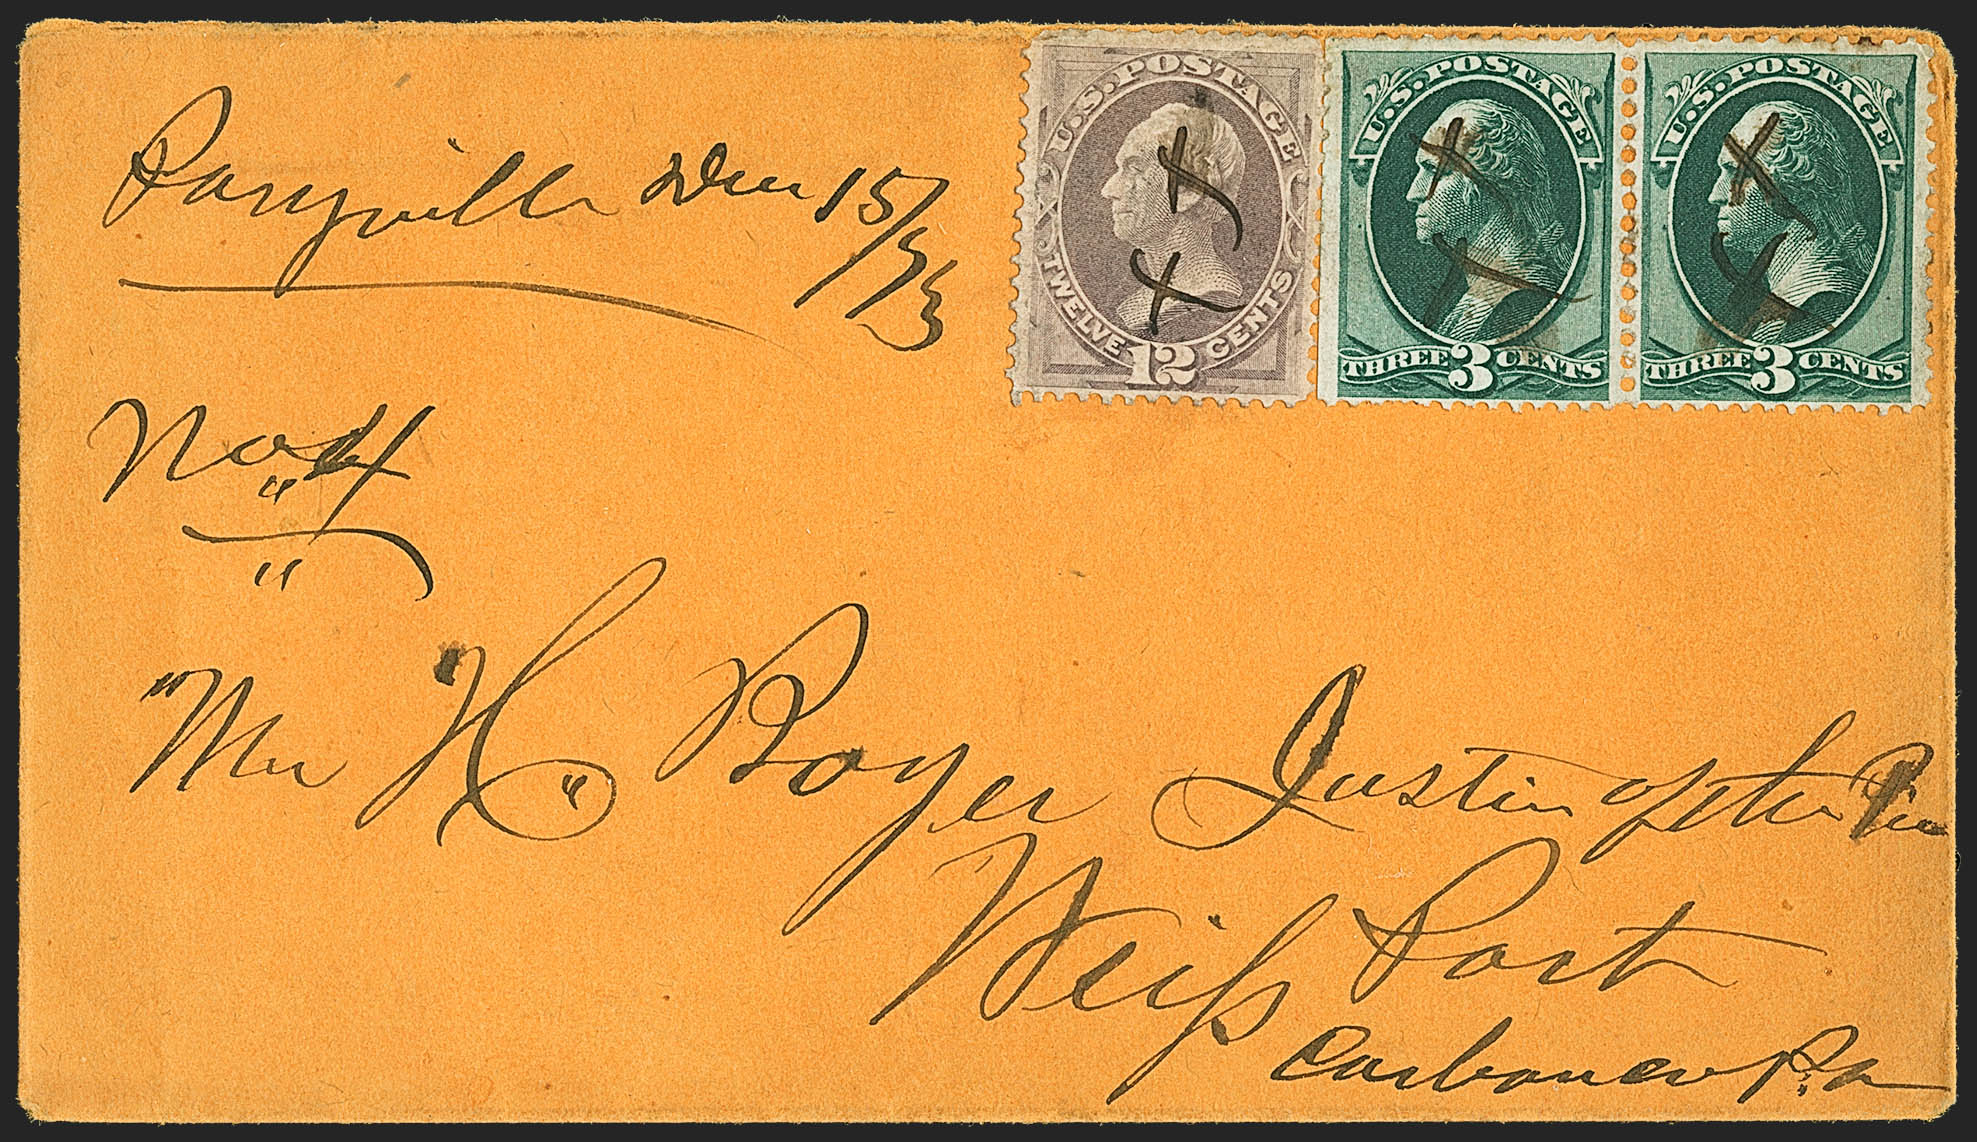 Parryville Dec 15/73
U.S. POSTAGE
TWELVE 12 CENTS
U.S. POSTAGE
THREE 3 CENTS
U.S. POSTAGE
THREE 3 CENTS
No 4
Mr H. Boyer Justice of the
Weiss Port
Carbon Co Pa